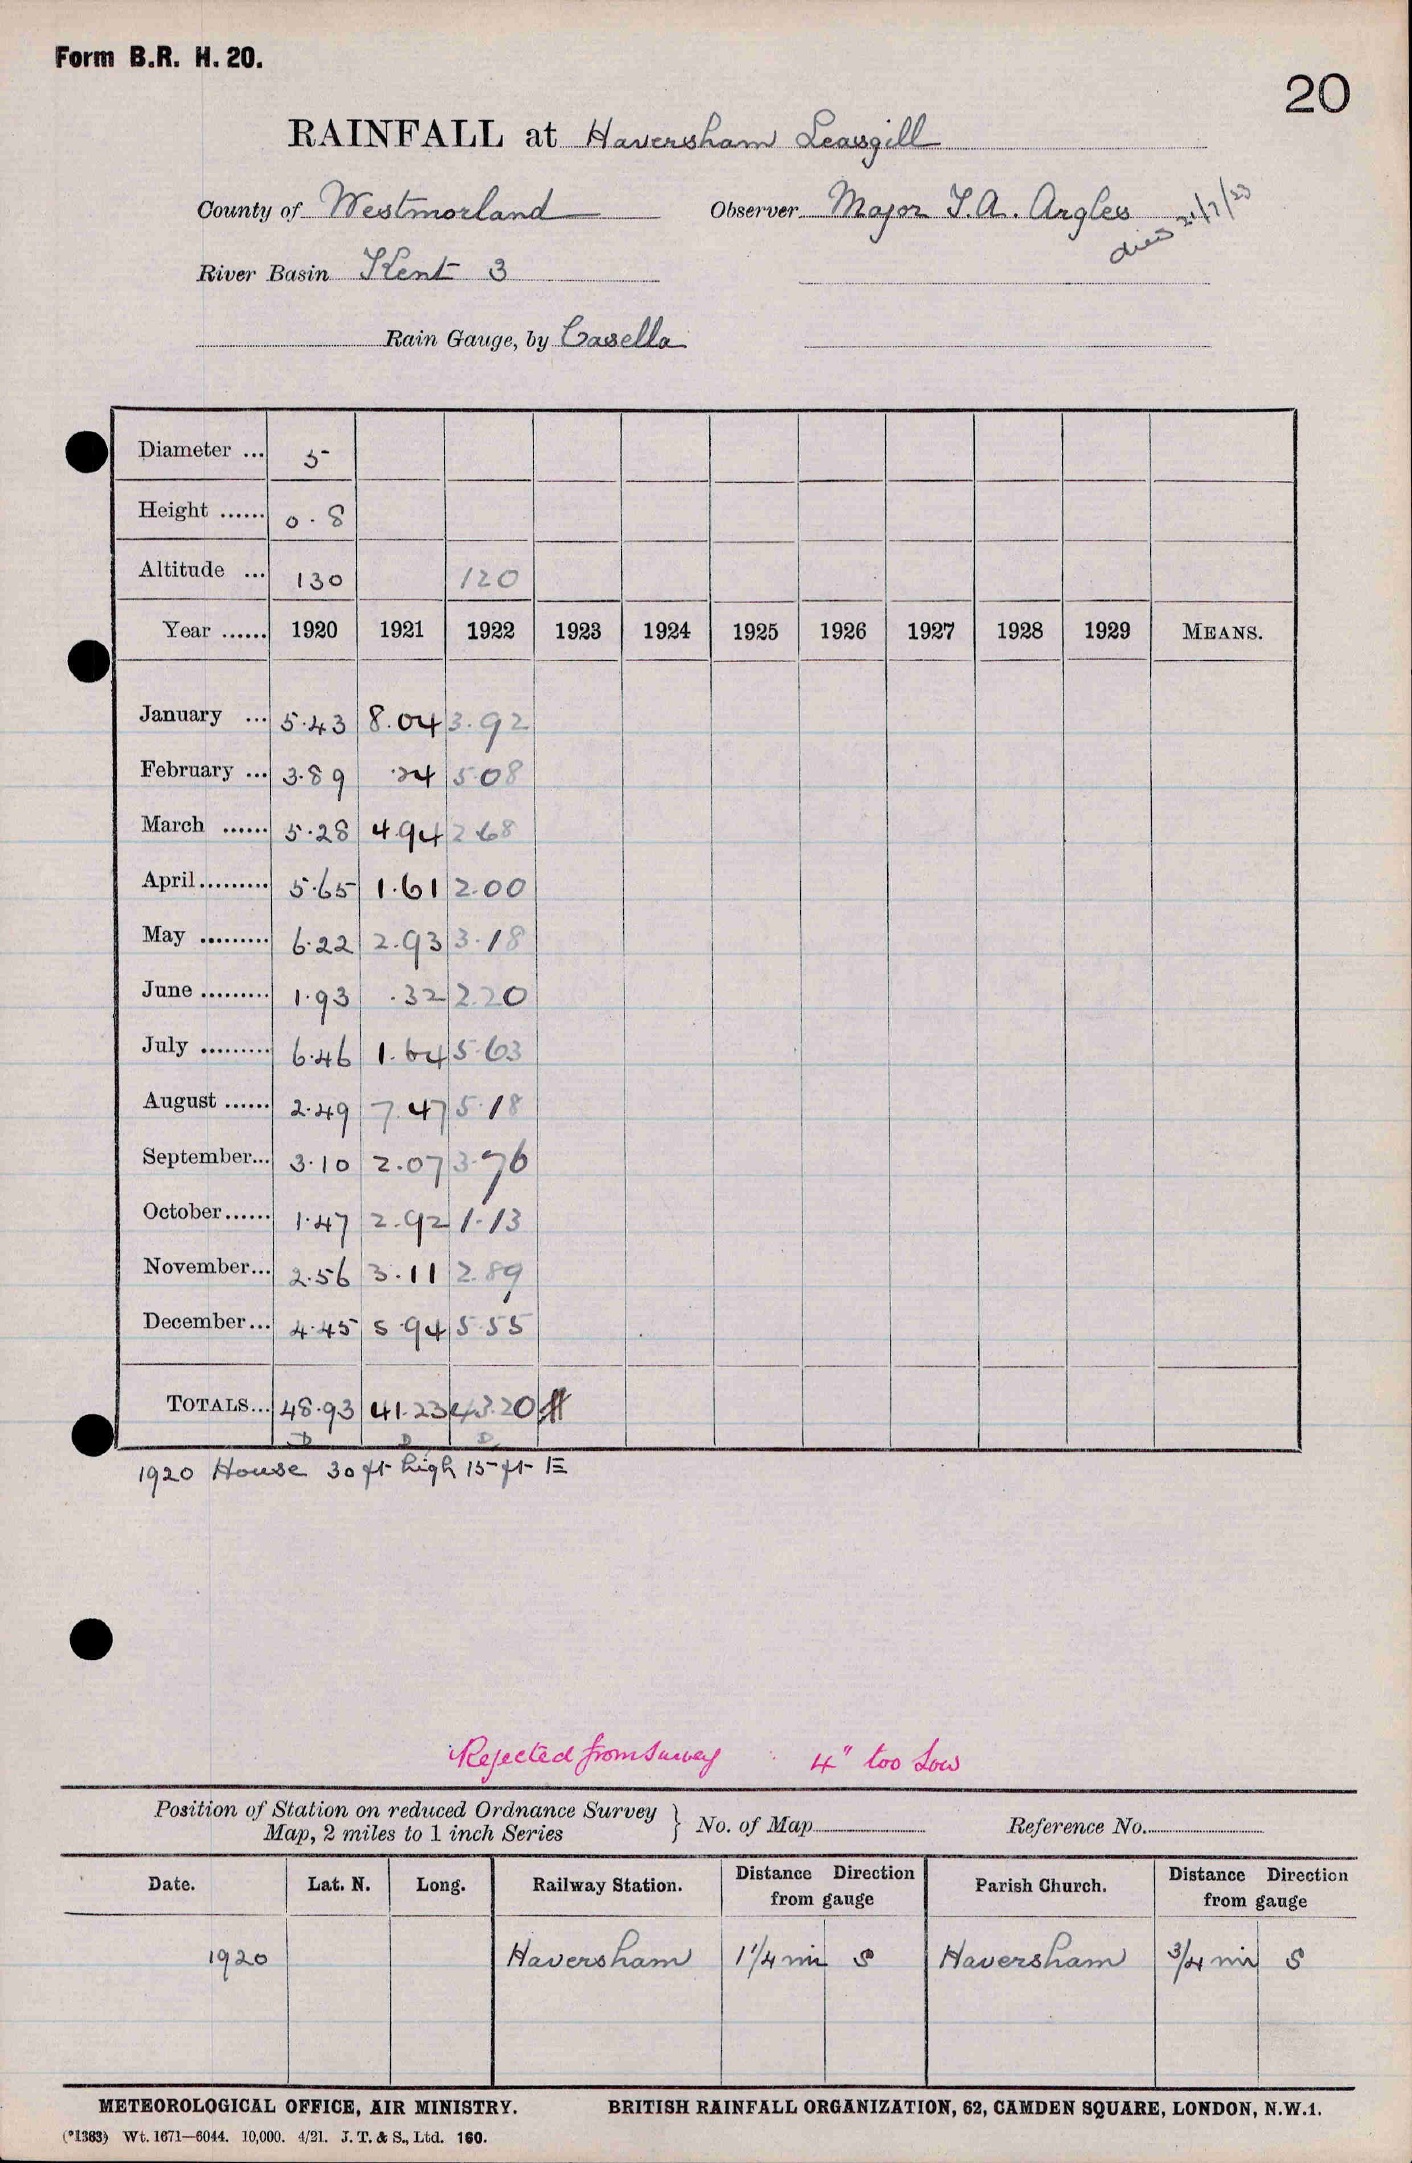 Form B.R. H. 20.
20
RAINFALL at Haversham Leasgill
County of Westmorland Observer Major T.A. Argles
died 21/7/23
River Basin Kent 3
Rain Gauge, by Casella
Diameter ... 5
Height ...... 0.8
Altitude ... 130 120
Year ...... 1920 1921 1922 1923 1924 1925 1926 1927 1928 1929 MEANS.
January ... 5.43 8.04 3.92
February ... 3.89 .24 5.08
March ...... 5.28 4.94 2.68
April ......... 5.65 1.61 2.00
May ......... 6.22 2.93 3.18
June ......... 1.93 .32 2.20
July ......... 6.46 1.64 5.63
August ...... 2.49 7.47 5.18
September... 3.10 2.07 3.76
October ...... 1.47 2.92 1.13
November... 2.56 3.11 2.89
December... 4.45 5.94 5.55
TOTALS... 48.93 41.23 43.20
D D D
1920 House 30 ft high 15 ft E
Rejected from Survey 4" too low
Position of Station on reduced Ordnance Survey
Map, 2 miles to 1 inch Series } No. of Map Reference No.
Date. Lat. N. Long. Railway Station. Distance Direction from gauge Parish Church. Distance Direction from gauge
1920 Haversham 1 1/4 mi S Haversham 3/4 mi S
METEOROLOGICAL OFFICE, AIR MINISTRY. BRITISH RAINFALL ORGANIZATION, 62, CAMDEN SQUARE, LONDON, N.W.1.
(*1383) Wt. 1671—6044. 10,000. 4/21. J. T. & S., Ltd. 160.